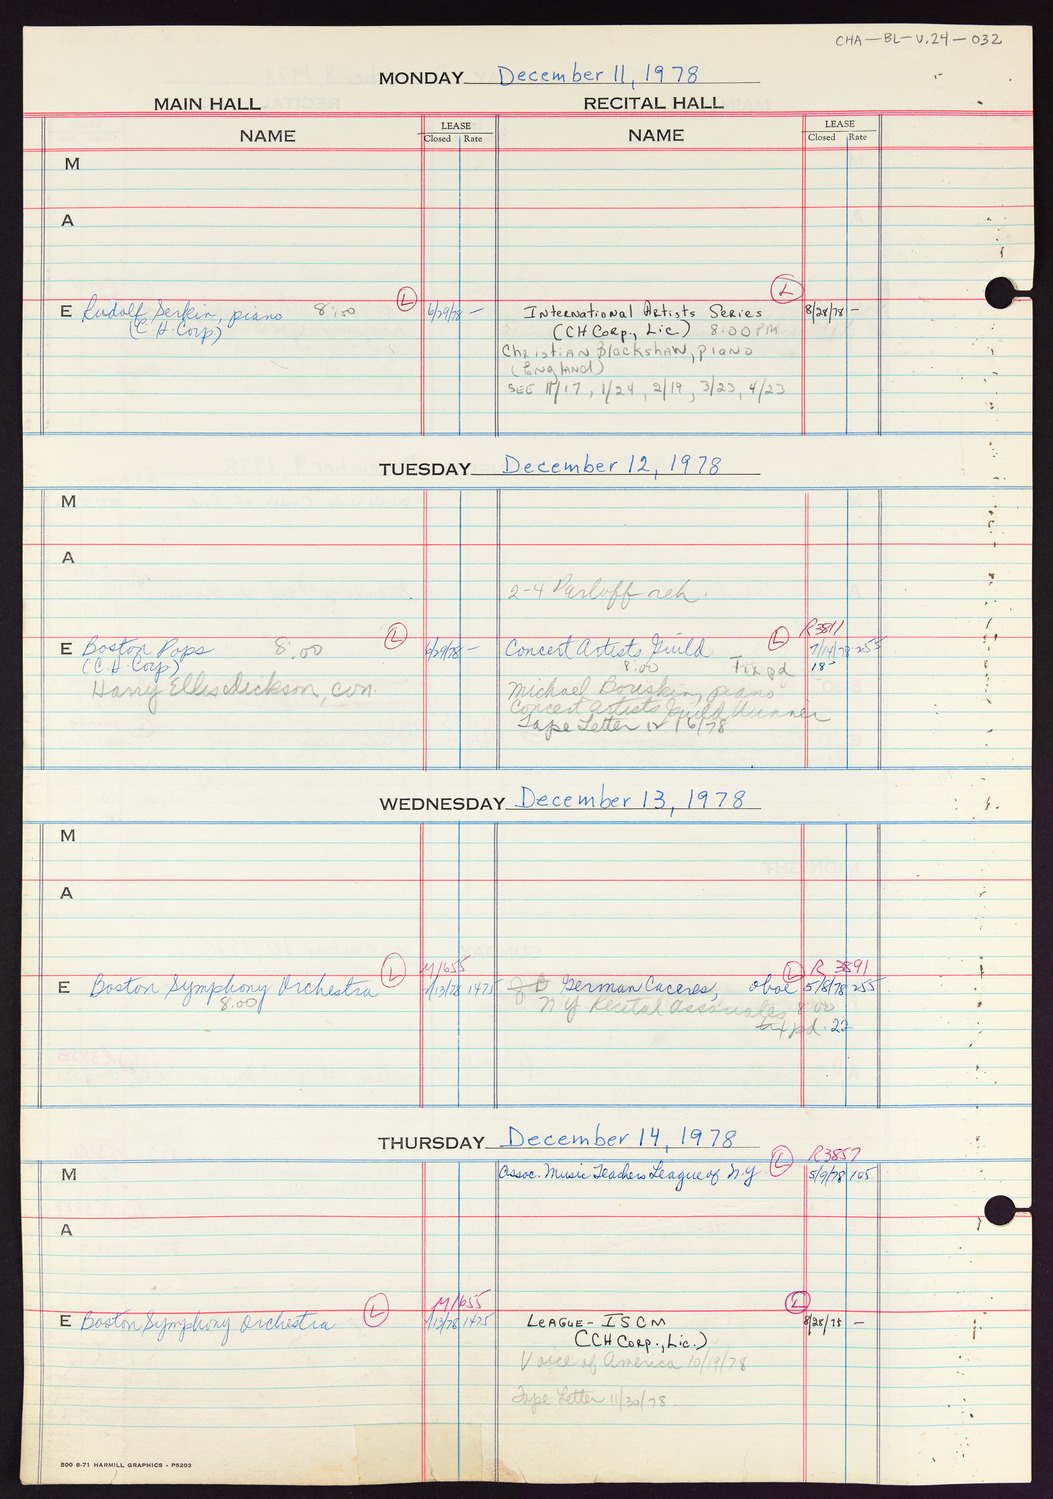 CHA-BL-V.24-032
MONDAY December 11, 1978
MAIN HALL RECITAL HALL
NAME LEASE Closed Rate NAME LEASE Closed Rate
M
A
E Rudolf Serkin, piano 8:00 L 6/29/78 -
(C.H. Corp)
L
International Artists Series 8/28/78 -
(CH Corp., Lic.) 8:00 PM
Christian Blackshaw, piano
(England)
SEE 11/17, 1/24, 2/19, 3/23, 4/23
TUESDAY December 12, 1978
M
A
2-4 Parloff reh.
E Boston Pops 8:00 L 6/29/78 -
(C.H. Corp)
Harry Ellis Dickson, con.
L R3811
Concert Artists Guild 7/14/78 255
8:00 Tix pd 18-
Michael Boriskin, piano
Concert Artists Guild Winner
Tape Letter 12/6/78
WEDNESDAY December 13, 1978
M
A
L M1655
E Boston Symphony Orchestra /13/78 1475
8:00
L R 3891
German Caceres, oboe 5/8/78 255
NY Recital Associates 8:00
tax pd. 22
THURSDAY December 14, 1978
L R3857
M Assoc. Music Teachers League of N.Y 5/9/78 105
A
L M1655
E Boston Symphony Orchestra /13/78 1475
L
League - ISCM 8/28/78 -
(CH Corp., Lic.)
Voice of America 10/19/78
Tape Letter 11/30/78
500 8-71 HARMILL GRAPHICS - P5203